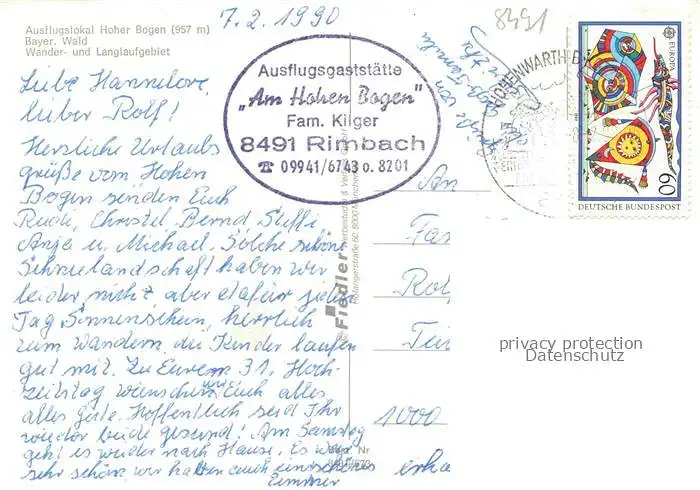 Ausflugslokal Hoher Bogen (957 m)
Bayer. Wald
Wander- und Langlaufgebiet
7.2.1990
8491
Ausflugsgaststätte
„Am Hohen Bogen"
Fam. Kilger
8491 Rimbach
☎ 09941/6743 o. 8201
HOHENWARTH
EUROPA
60
DEUTSCHE BUNDESPOST
Liebe Hannelore,
lieber Rolf!
Herzliche Urlaubs
grüße vom Hohen
Bogen senden Euch
Rudi, Christel, Bernd, Steffi,
Anja u. Michael. Solche schöne
Schneelandschaft haben wir
leider nicht, aber dafür jeden
Tag Sonnenschein, herrlich
zum Wandern, die Kinder laufen
gut mit. Zu Eurem 31. Hoch-
zeitstag wünschen wir Euch alles
alles Gute. Hoffentlich seid Ihr
wieder beide gesund! Am Samstag
geht es wieder nach Hause. Es war
sehr schön, wir hatten auch ein schönes
Zimmer
Fiedler
An
Fa
Rol
1000
privacy protection
Datenschutz